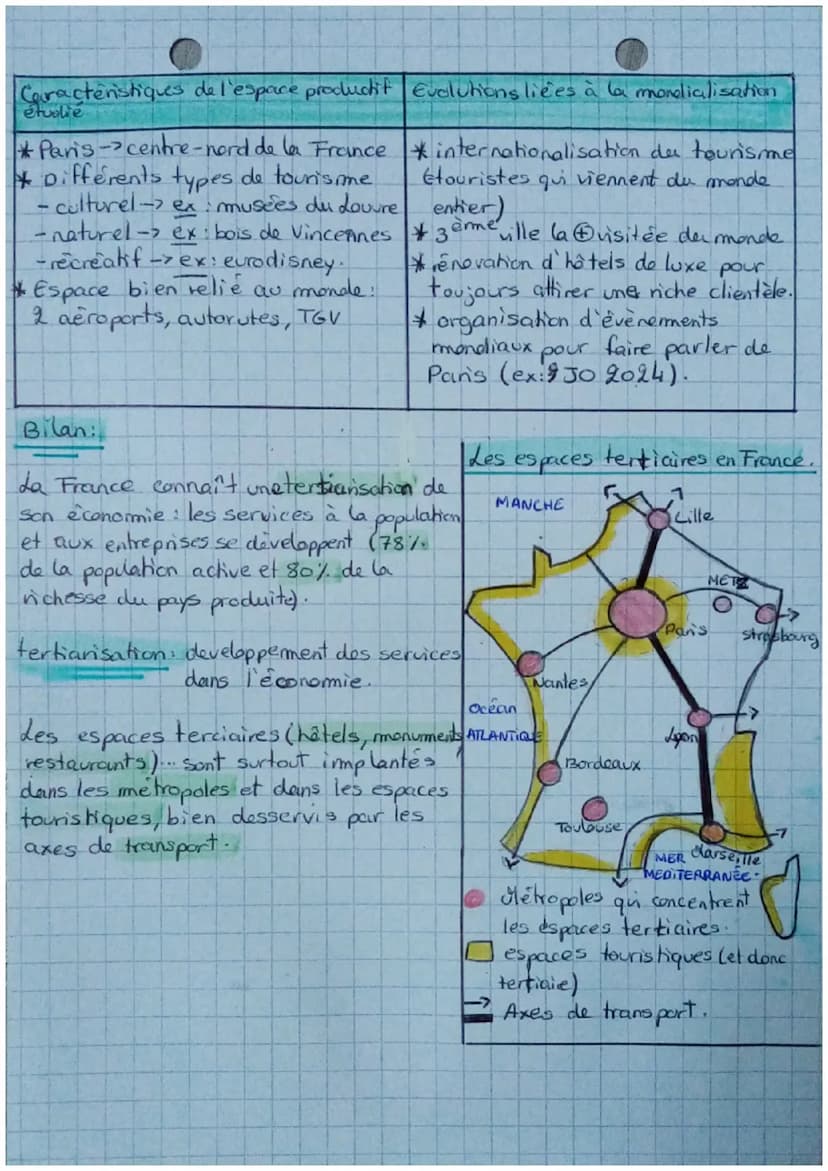 Caractéristiques de l'espace productif
étudié
* Paris -> centre-nord de la France
* Différents types de tourisme
- culturel -> ex : musées du Louvre
- naturel -> ex : bois de Vincennes
- récréatif -> ex : eurodisney.
* Espace bien relié au monde :
2 aéroports, autorutes, TGV
Evolutions liées à la mondialisation
* internationalisation du tourisme
(touristes qui viennent du monde
entier)
* 3ème ville la ⊕ visitée du monde
* rénovation d'hôtels de luxe pour
toujours attirer une riche clientèle.
* organisation d'évènements
mondiaux pour faire parler de
Paris (ex: JO 2024).
Bilan :
La France connaît une tertiarisation de
son économie : les services à la population
et aux entreprises se développent (78%
de la population active et 80% de la
richesse du pays produite).
tertiarisation : developpement des services
dans l'économie.
Les espaces terciaires (hôtels, monuments
restaurants)... sont surtout implantés
dans les métropoles et dans les espaces
touristiques, bien desservis par les
axes de transport.
Les espaces tertiaires en France.
MANCHE
Lille
METZ
Paris
Strasbourg
Nantes
Océan
ATLANTIQUE
Lyon
Bordeaux
Toulouse
Marseille
MER
MEDITERRANÉE.
Métropoles qui concentrent
les espaces tertiaires.
espaces touristiques (et donc
tertiaie)
Axes de transport.